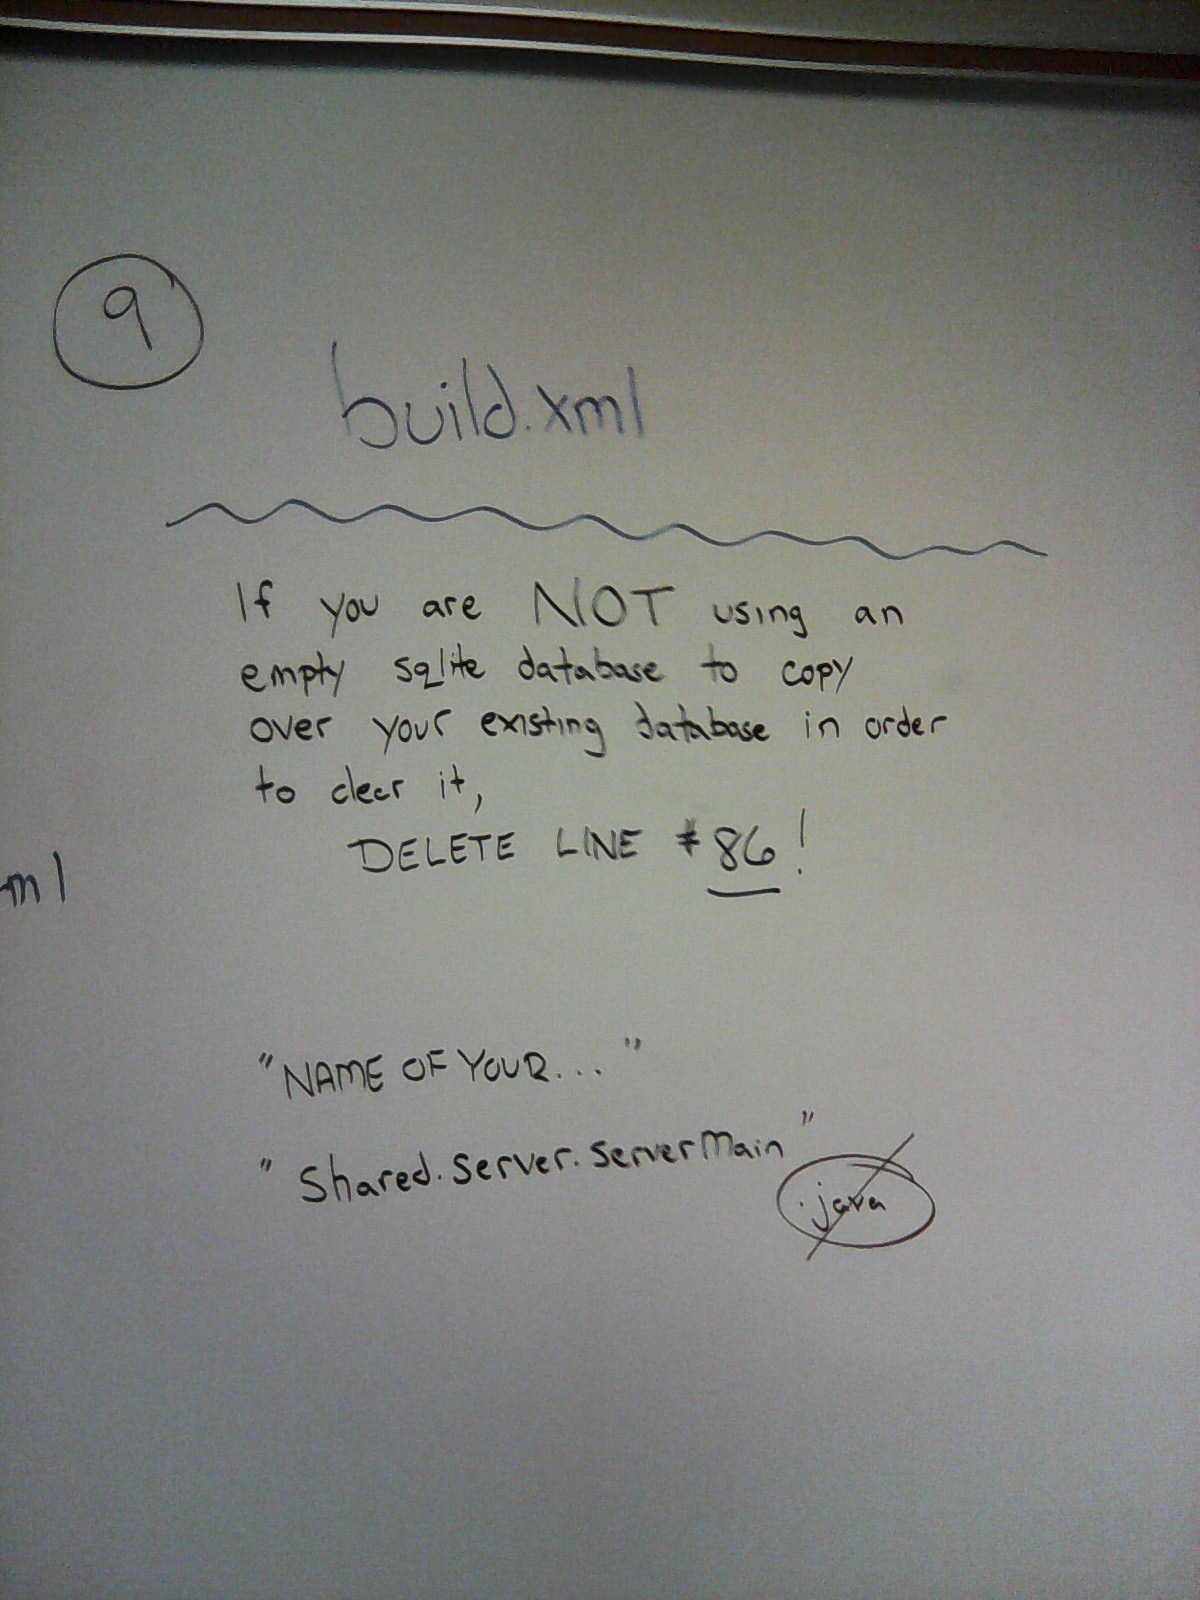 9
build.xml
If you are NOT using an
empty sqlite database to copy
over your existing database in order
to clear it,
DELETE LINE #86!
ml
"NAME OF YOUR..."
"Shared.Server.ServerMain"
.java